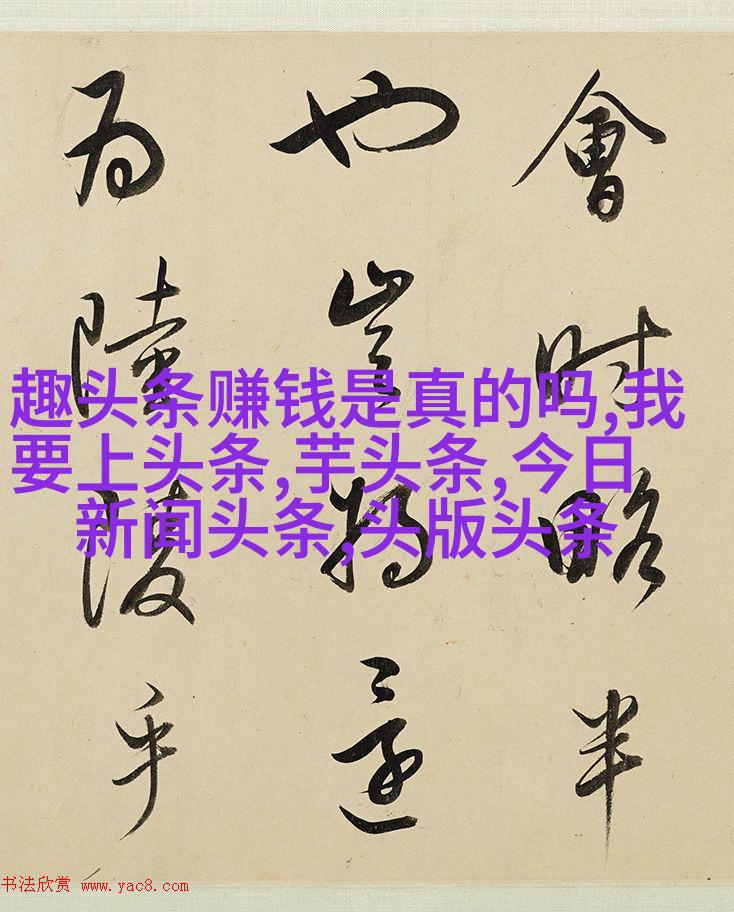 會時略半
也豈將還
為陸陵乎
趣头条赚钱是真的吗,我
要上头条,芋头条,今日
新闻头条,头版头条
书法欣赏 www.yac8.com